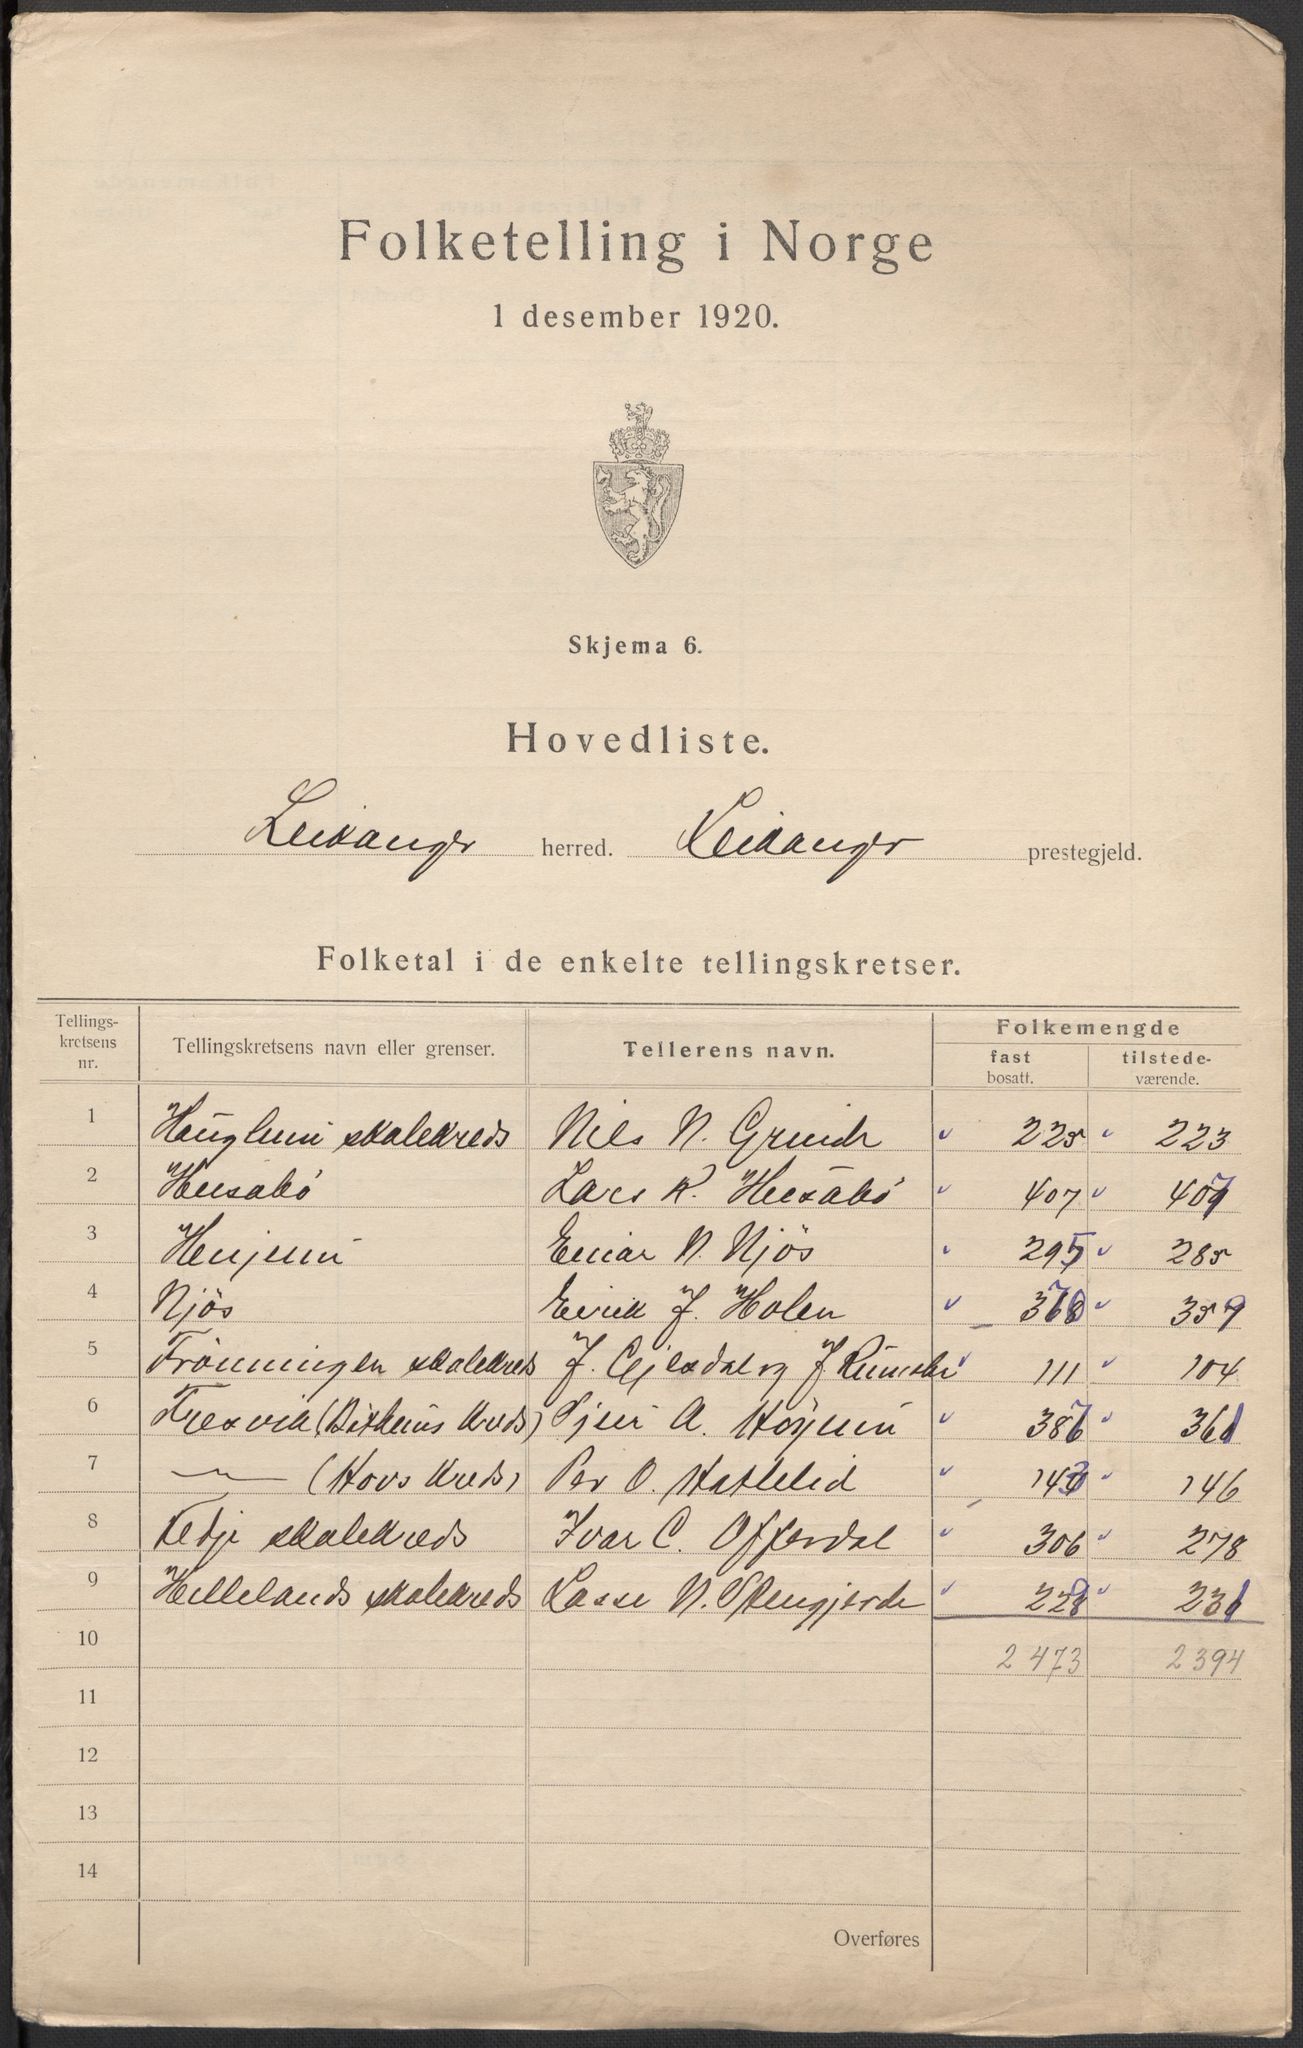 Folketelling i Norge
1 desember 1920.
Skjema 6.
Hovedliste.
Leikanger herred. Leikanger prestegjeld.
Folketal i de enkelte tellingskretser.
Tellings-kretsens nr. Tellingskretsens navn eller grenser. Tellerens navn. Folkemengde
fast bosatt. tilstede-værende.
1 Skolekreds Nils N. Grinde 225 223
2 Husabö Lars K. Husabö 407
3 Henjum Einar N. Njös 295 285
4 Njös Eirik J. Holen 359
5 Frönningen skolekreds J. og J. 111 104
6 Fresvik ( Kreds) A. 361
7 — (Hovs Kreds) Per O. Hatlelid 146
8 Fedje skolekreds Ivar C. Offerdal 306 278
9 Hellelands skolekreds Lasse N. 228 231
10 2 473 2 394
11
12
13
14
Overføres